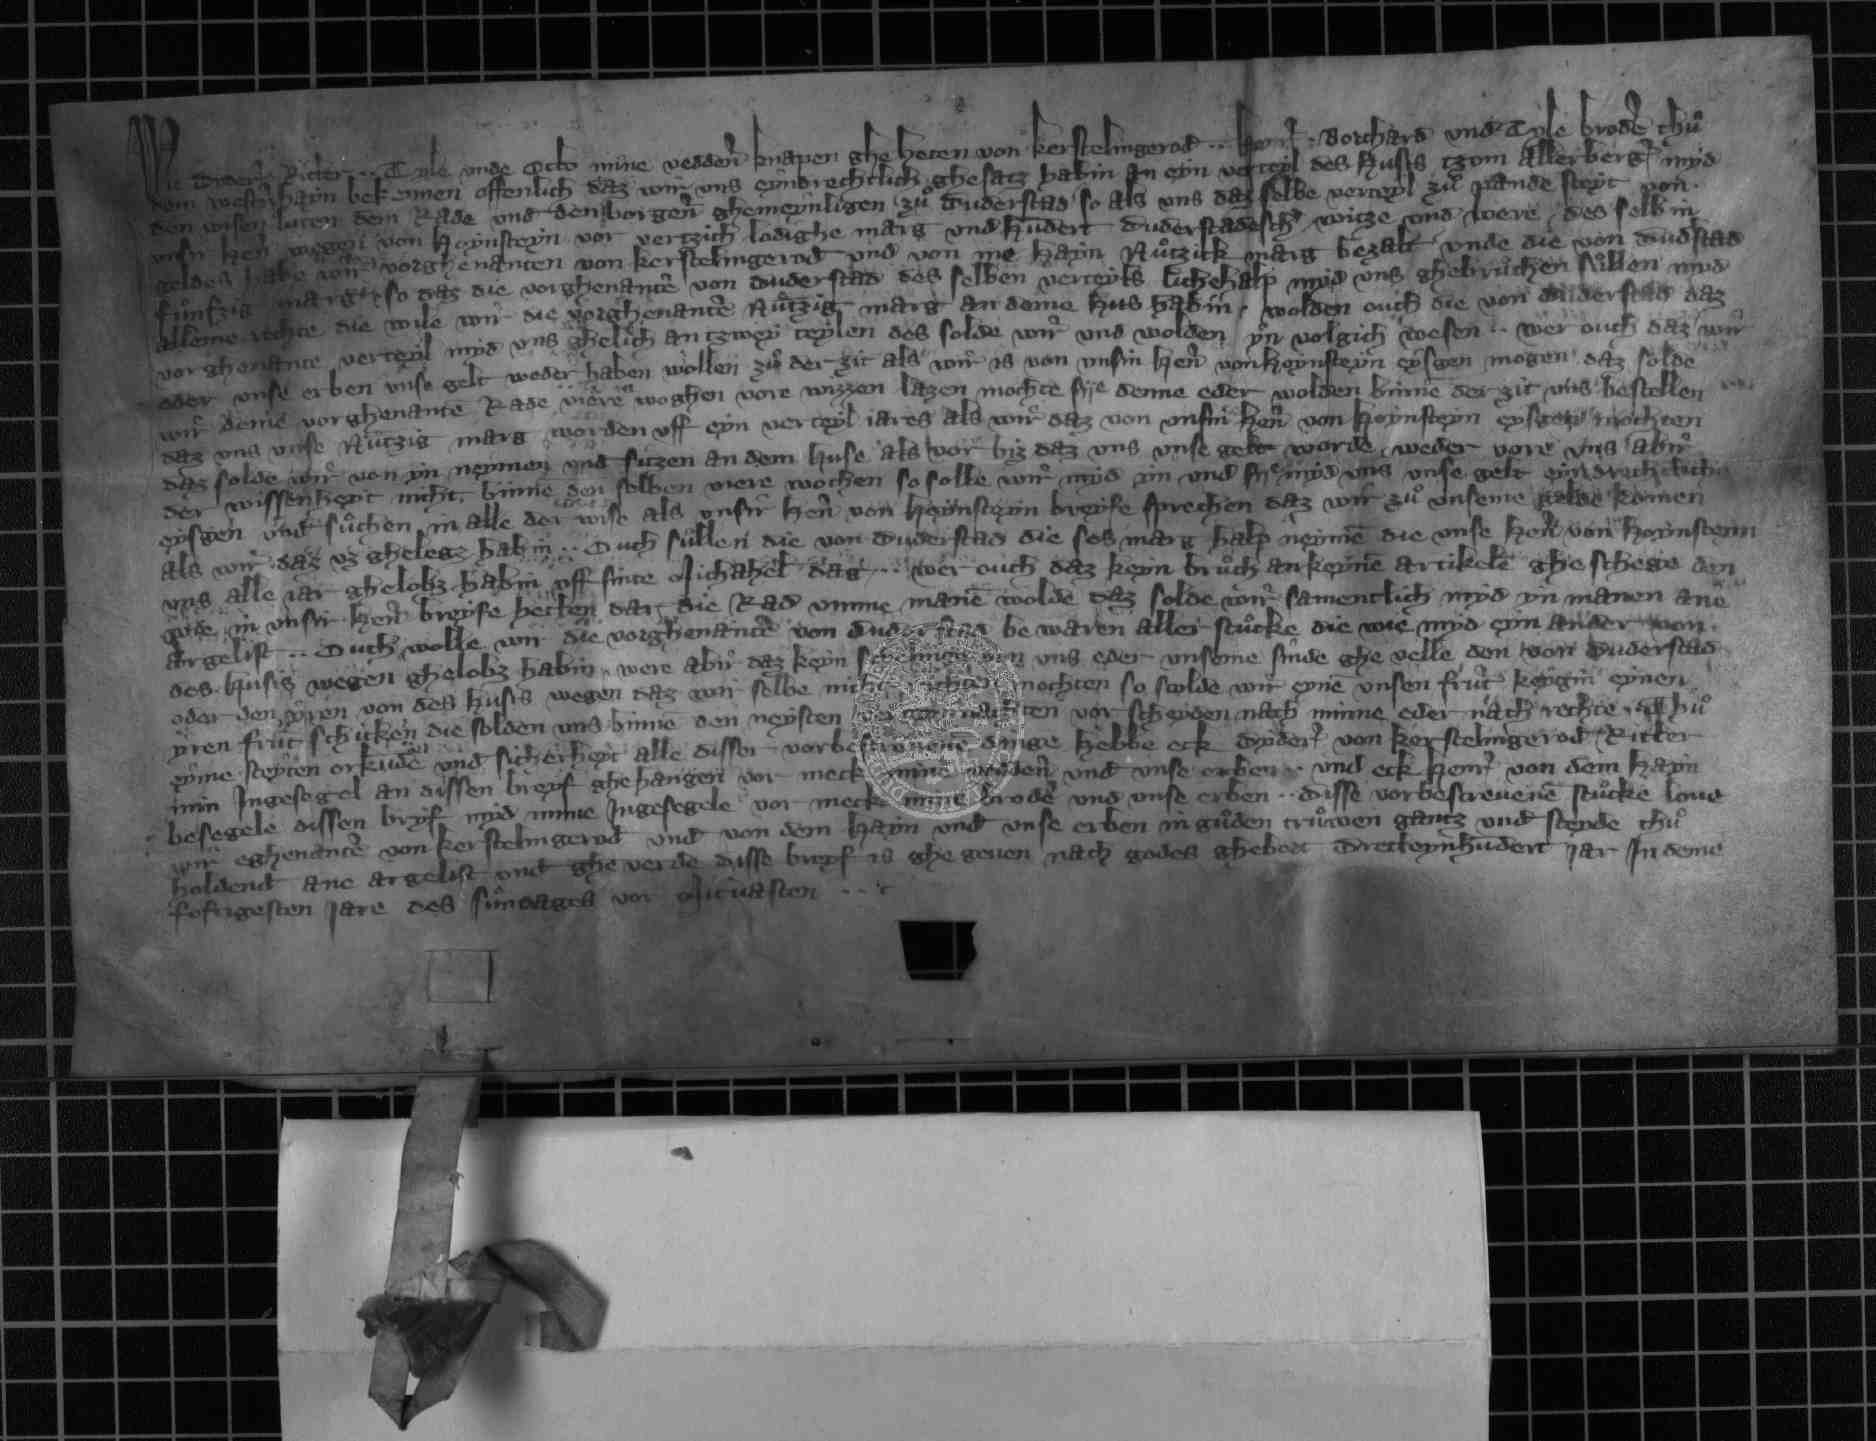 Wie Ritter .. Tyle unde Otto mine vedderñ knapen ghe heten von kerstelingerod .. henr̃ . Borchard vnd Tyle brodẽ thů
vom hayn bekennen offenlich daz wir vns eyndrechtlich ghesatz habin an eyn verteyl des husis tzom Allerbergẽ myd
den wisen luten dem Rade vnd den borgerñ ghemeynligen zů duderstad so als vns daz selbe verteyl zů pande steyt von
vnsn herñ wegen von hoynsteyn vor vertzich lodighe marg vnd hundert duderstadesch witze vnd were des selbin
geldes habe wir vorghenanten von kerstelingerod vnd von me hayn Nůtzik marg bezalt vnde die von dudstad
fůnfzig marg so daz die vorghenantẽ von duderstad des selben verteyls lichehalp myd vns ghebrůchen sůllen myd
alleme rechte die wile wir die vorghenantẽ Nůtzig marg an deme hus habin . wolden ouch die von duderstad daz
vorghenante verteyl myd vns ghelich an tzwey teylen des solde wir vnd wolden yn volgich wesen .. wer ouch daz wir
oder vnse erben vnse gelt weder haben wollen zů der zit als wir is von vnsin herñ von hoynsteyn eysgen mogen daz solde
wir deme vorghenantẽ Rade viere woghen vore wizzen lazen mochte sye denne eder wolden binne der zit vns bestellen
daz vns vnse Nůtzig marg worden vff eyn verteyl iares als wir daz von vnsin herñ von hoynsteyn eysgen mochten
daz solde wir von yn neymen vnd sitzen an dem huse als vor biz daz vns vnse gelt worde weder vore vns abir
der wissenheyt nicht binne den selben viere wochen so solle wir myd yn vnd sye myd vns vnse gelt eyndrechtlich
eysgen vnd sůchen in alle der wise als vnsir herñ von hoynsteyn breyfe sprechen daz wir zů vnseme gelde komen
als wir daz vz ghelegz habin .. Ouch sůllen die von duderstad die ses marg halp neymẽ die vnse herñ von hoynsteyn
vns alle iar ghelobz habin vff sinte Michahel dag ... wer ouch daz keyn brůch an keynẽ artikelẽ ghe schege den
in vnsir herñ breyfe hetten dar die Rad vmme manẽ wolde daz solde wir samentlich myd yn manen ane
argelist .. Ouch wolle wir die vorghenantẽ von duderstad be waren aller stůcke die wie myd eyn ander von
des husis wegen ghelobz habin were abir daz keyn vns eder vnseme sinde ghe velle den von duderstad
oder den yren von des husis wegen daz wir selbe nicht mochten so scolde wir eynẽ vnsen frůt keygin eynen
yren frůt schicken die solden vns binne den neysten vor scheyden nach minne eder nach rechte Thů
eyme steyten orkůde vnd sicherheyt alle disser vorbescreuene dinge hebbe eck dyderc̃ von kerstelingerod Ritter
min Ingesegel an dissen breyf ghehangen vor meck mine vedderñ vnd vnse erben .. vnd eck henr̃ von dem hayn
besegele dissen bryf myd mime Ingesegele vor meck mine brodẽ vnd vnse erben .. disse vorbescreuenẽ stůcke loue
wir eghenantẽ von kerstelingerod vnd von dem hayn vnd vnse erben in gůden trůwen gantz vnd stede thů
holdend ane argelist vnd ghe verde disse breyf is ghe geuen nach godes ghebort Dretteynhůdert Jar In deme
fofzigesten Jare des sůndages vor Mituasten ...